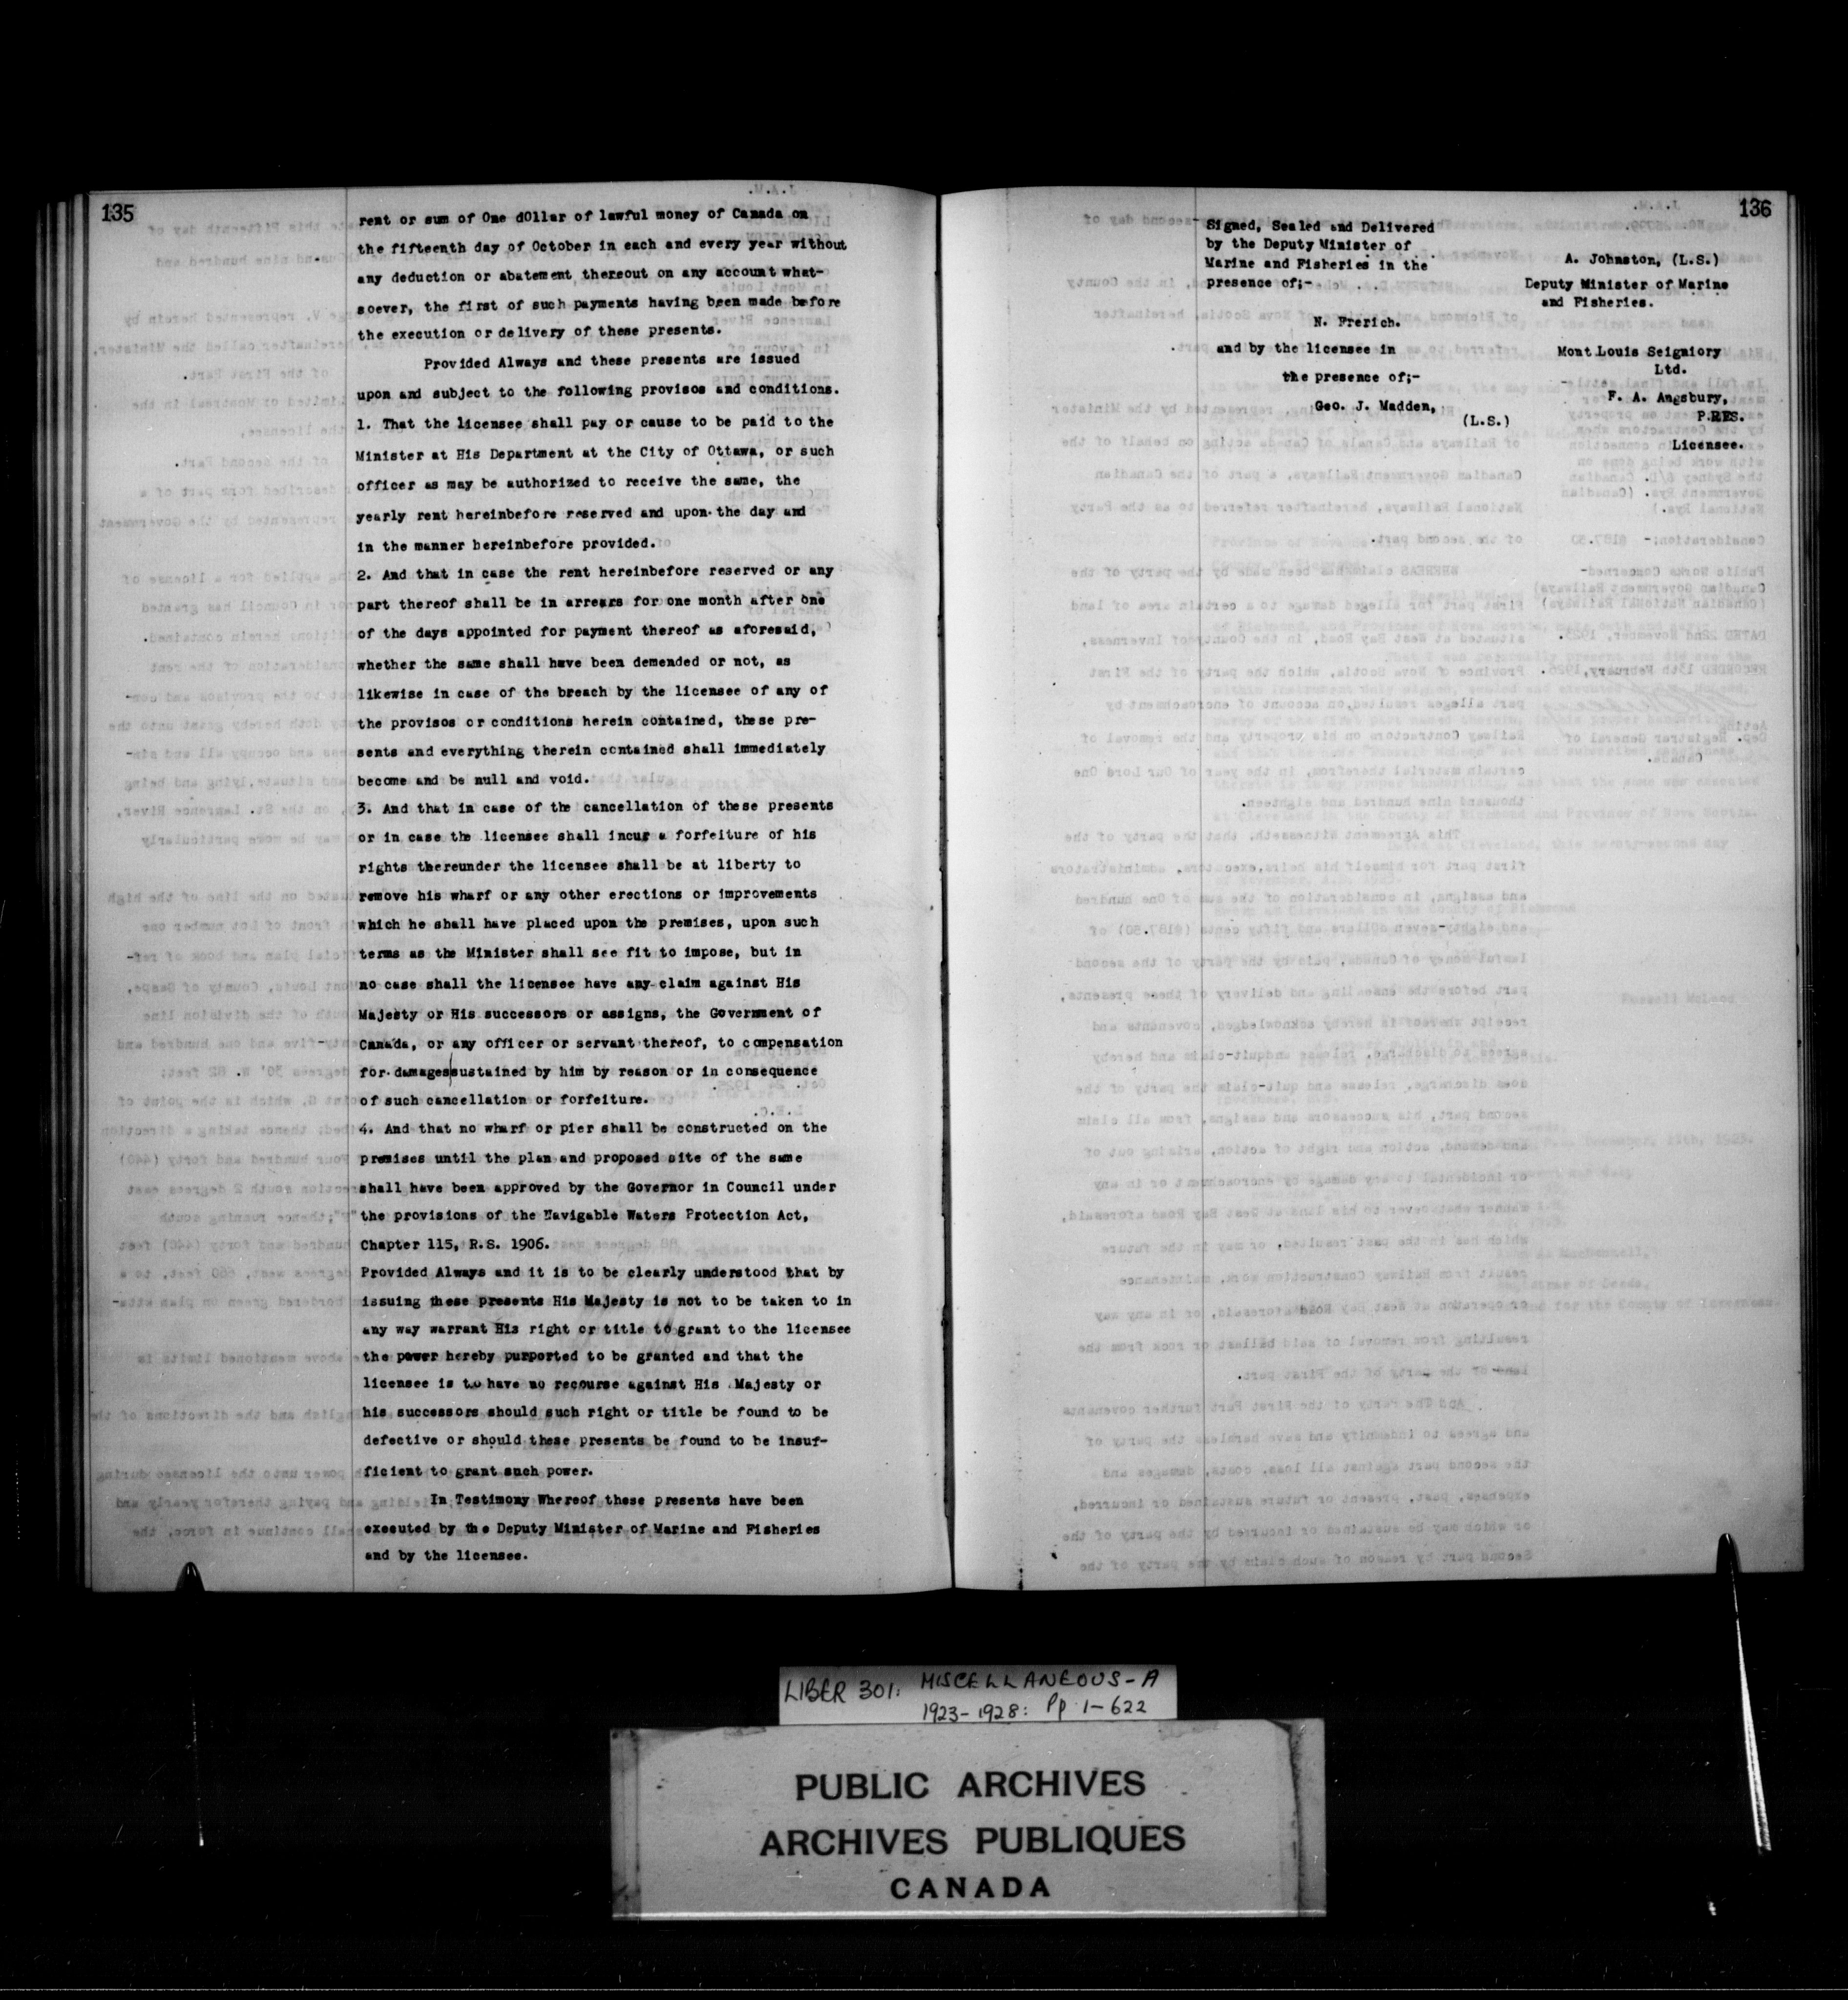 135
rent or sum of One dOllar of lawful money of Canada on
the fifteenth day of October in each and every year without
any deduction or abatement thereout on any account what-
soever, the first of such payments having been made before
the execution or delivery of these presents.
Provided Always and these presents are issued
upon and subject to the following provisos and conditions.
1. That the licensee shall pay or cause to be paid to the
Minister at His Department at the City of Ottawa, or such
officer as may be authorized to receive the same, the
yearly rent hereinbefore reserved and upon the day and
in the manner hereinbefore provided.
2. And that in case the rent hereinbefore reserved or any
part thereof shall be in arrears for one month after one
of the days appointed for payment thereof as aforesaid,
whether the same shall have been demended or not, as
likewise in case of the breach by the licensee of any of
the provisos or conditions herein contained, these pre-
sents and everything therein contained shall immediately
become and be null and void.
3. And that in case of the cancellation of these presents
or in case the licensee shall incur a forfeiture of his
rights thereunder the licensee shall be at liberty to
remove his wharf or any other erections or improvements
which he shall have placed upon the premises, upon such
terms as the Minister shall see fit to impose, but in
no case shall the licensee have any claim against His
Majesty or His successors or assigns, the Government of
Canada, or any officer or servant thereof, to compensation
for damages|sustained by him by reason or in consequence
of such cancellation or forfeiture.
4. And that no wharf or pier shall be constructed on the
premises until the plan and proposed site of the same
shall have been approved by the Governor in Council under
the provisions of the Navigable Waters Protection Act,
Chapter 115, R.S. 1906.
Provided Always and it is to be clearly understood that by
issuing these presents His Majesty is not to be taken to in
any way warrant His right or title to grant to the licensee
the power hereby purported to be granted and that the
licensee is to have no recourse against His Majesty or
his successors should such right or title be found to be
defective or should these presents be found to be insuf-
ficient to grant such power.
In Testimony Whereof these presents have been
executed by the Deputy Minister of Marine and Fisheries
and by the licensee.
136
Signed, Sealed and Delivered
by the Deputy Minister of
Marine and Fisheries in the
presence of;-
N. Frerich.
and by the licensee in
the presence of;-
Geo. J. Madden,
(L.S.)
A. Johnston, (L.S.)
Deputy Minister of Marine
and Fisheries.
Mont Louis Seigniory
Ltd.
F. A. Angsbury,
PRES.
Licensee.
LIBER 301: MISCELLANEOUS-A
1923-1928: Pp 1-622
PUBLIC ARCHIVES
ARCHIVES PUBLIQUES
CANADA